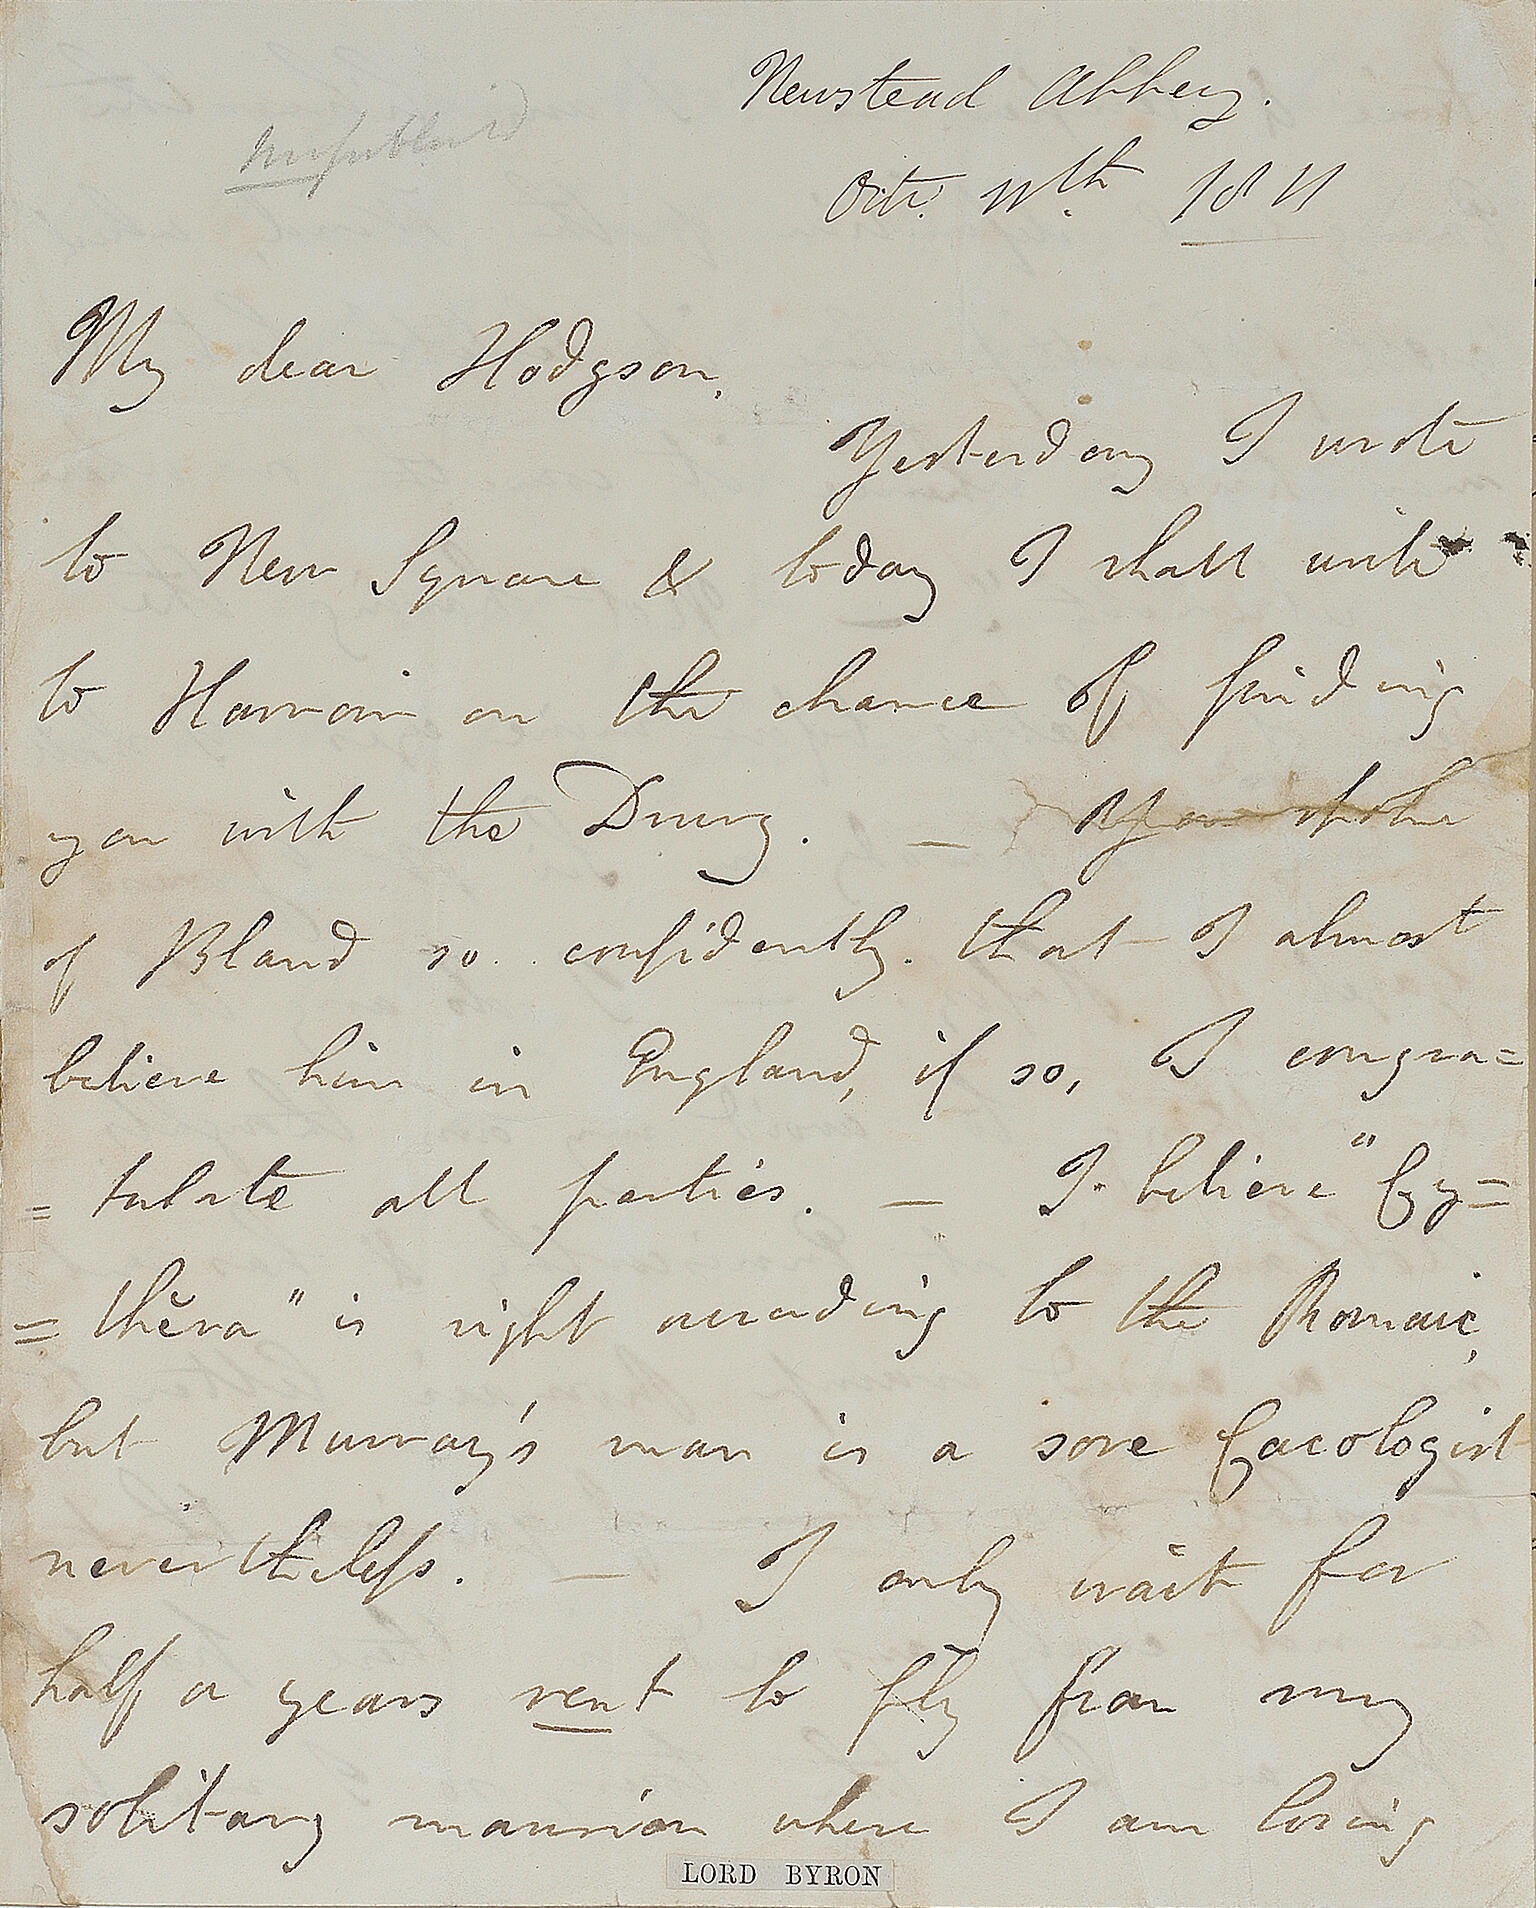 Newstead Abbey.
unpublished
Octr. 11th. 1811
My dear Hodgson,
Yesterday I wrote
to New Square & today I shall write
to Harrow on the chance of finding
you with the Drury. — You spoke
of Bland so confidently that I almost
believe him in England, if so, I congra=
=tulate all parties. — I believe "Cy=
=thĕra" is right according to the Romaic,
but Murray's man is a sore Cacologist
nevertheless. — I only wait for
half a years rent to fly from my
solitary mansion where I am losing
LORD BYRON